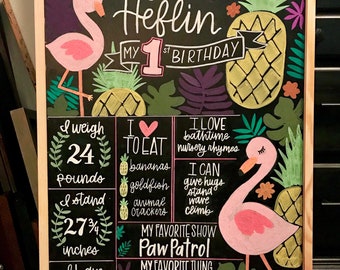 Heflin
MY 1ST BIRTHDAY
I weigh
24
pounds
I stand
27 3/4
inches
I ♥
TO EAT
bananas
goldfish
animal
crackers
I LOVE
bathtime
nursery rhymes
I CAN
give hugs
stand
wave
climb
MY FAVORITE SHOW
Paw Patrol
MY FAVORITE THING